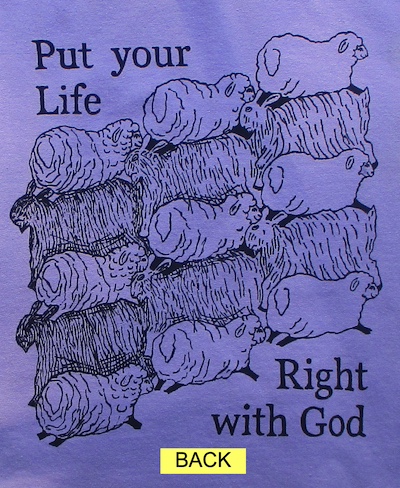 Put your
Life
Right
with God
BACK